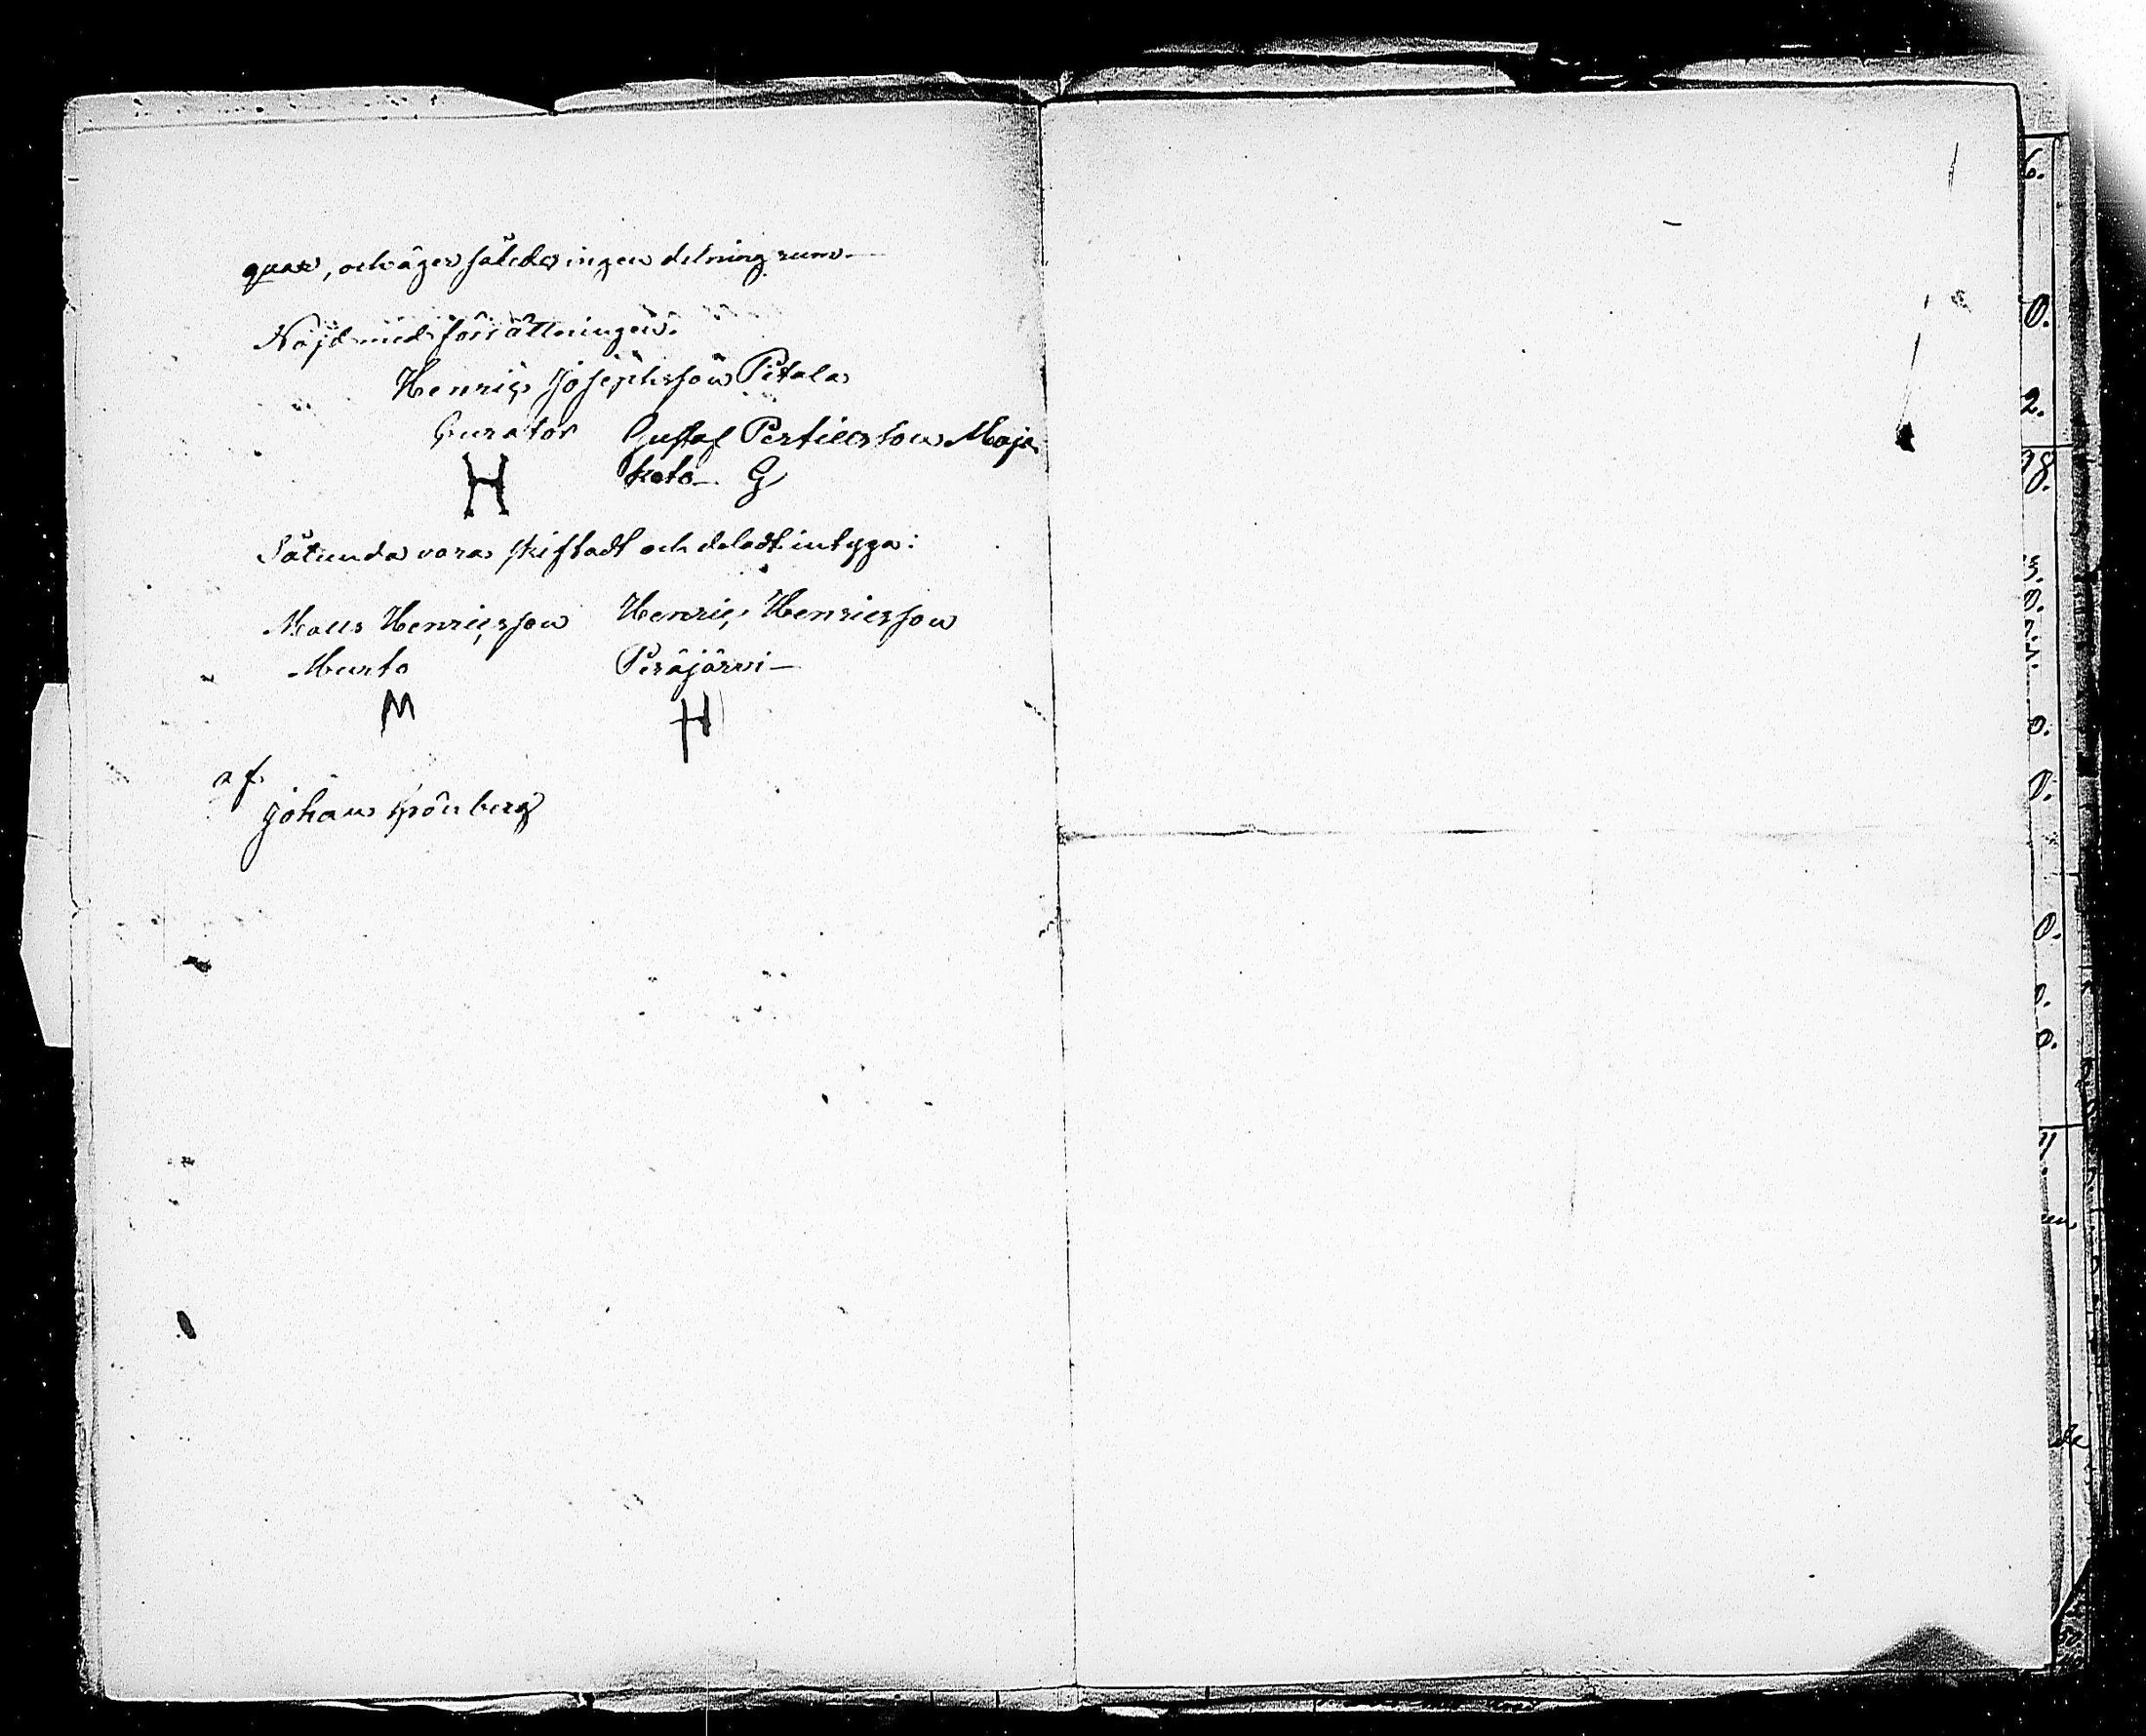 quar, och äger således ingen delning rum.
Nöjd med förrättningen.
Henric Josephsson Pitala
Curator Gustaf Pertilersson Maja
H koto G
Såtunda vara skiftadt och deladt intyga:
Matts Henricsson Henric Henricsson
Murto Peräjärvi
M H
af
Johan Grönberg
6.
0.
2.
18.
0.
0.
0.
0.
0.